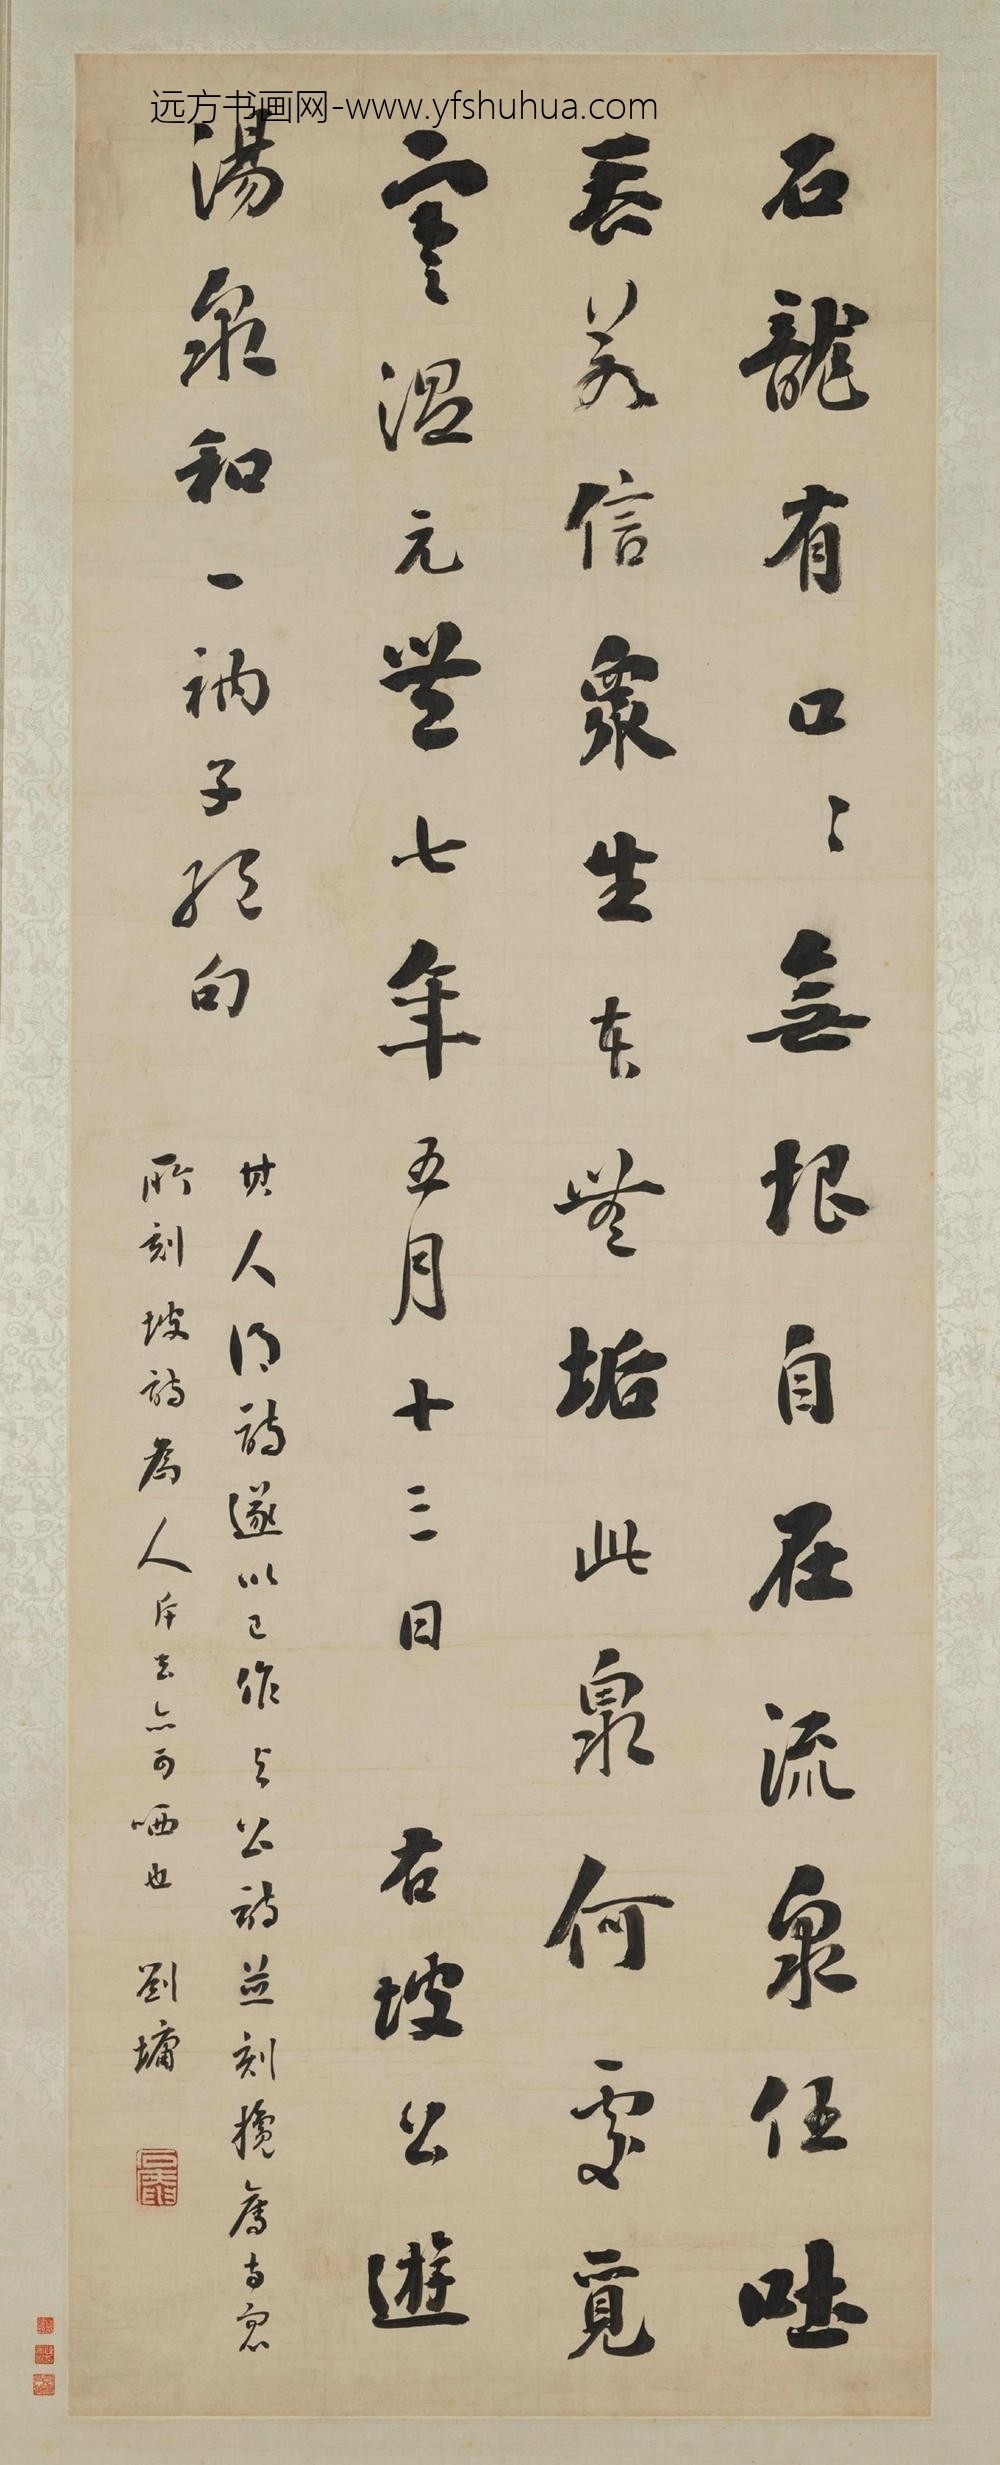 远方书画网-www.yfshuhua.com
石龍有口〻無根自在流泉任吐
吞若信衆生本無垢此泉何處覓
寒温元豐七年五月十三日 右坡公遊
湯泉和一衲子絕句
其人得詩遂以己作与公詩並刻攙舊
所刻坡詩爲人斥去亦可哂也 劉墉